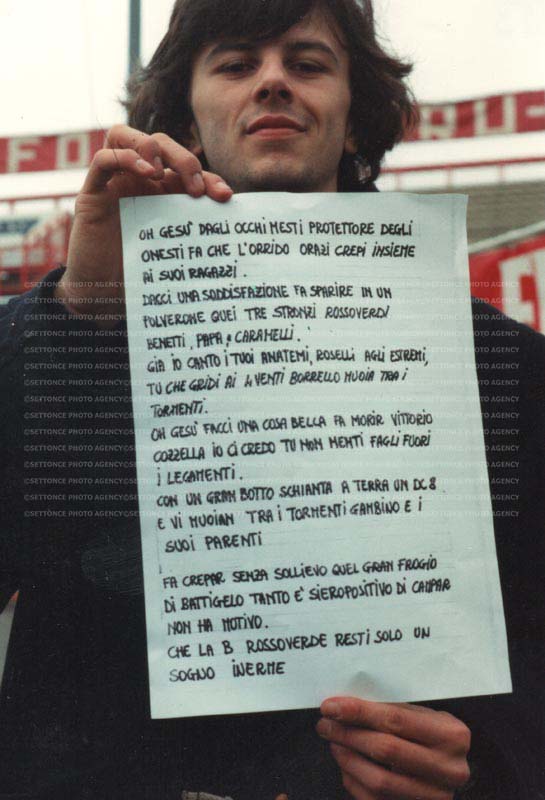 FO
RU-
OH GESU' DAGLI OCCHI MESTI PROTETTORE DEGLI
ONESTI FA CHE L'ORRIDO ORAZI CREPI INSIEME
AI SUOI RAGAZZI.
DACCI UNA SODDISFAZIONE FA SPARIRE IN UN
POLVERONE QUEI TRE STRONZI ROSSOVERDI
BENETTI, PAPA E CARAMELLI.
GIA IO CANTO I TUOI ANATEMI, ROSELLI AGLI ESTREMI,
TU CHE GRIDI AI 4 VENTI BORRELLO MUOIA TRA I
TORMENTI.
OH GESU' FACCI UNA COSA BELLA FA MORIR VITTORIO
COZZELLA IO CI CREDO TU NON MENTI FAGLI FUORI
I LEGAMENTI.
CON UN GRAN BOTTO SCHIANTA A TERRA UN DC8.
E VI MUOIAN TRA I TORMENTI GAMBINO E I
SUOI PARENTI
FA CREPAR SENZA SOLLIEVO QUEL GRAN FROGIO
DI BATTIGELO TANTO E' SIEROPOSITIVO DI CAMPAR
NON HA MOTIVO.
CHE LA B ROSSOVERDE RESTI SOLO UN
SOGNO INERME
©SETTONCE PHOTO AGENCY